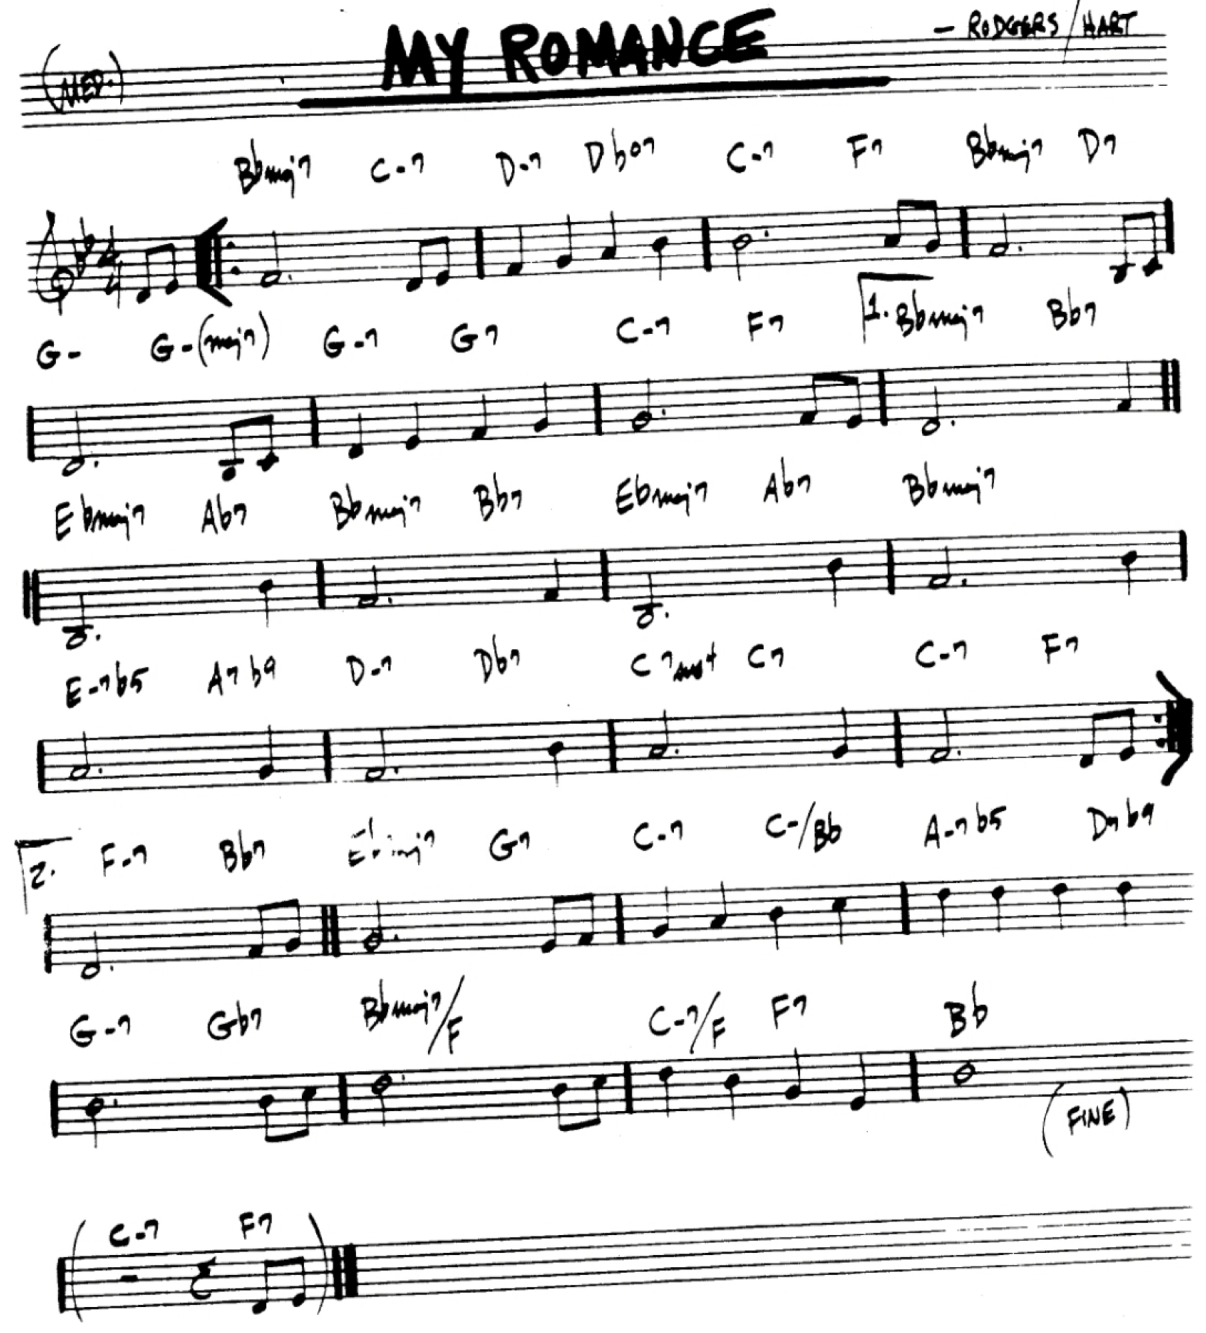 (MED.) MY ROMANCE — RODGERS/HART
Bbmaj7 C-7 D-7 Dbo7 C-7 F7 Bbmaj7 D7
4 4
G- G-(maj7) G-7 G7 C-7 F7 1. Bbmaj7 Bb7
Ebmaj7 Ab7 Bbmaj7 Bb7 Ebmaj7 Ab7 Bbmaj7
E-7b5 A7b9 D-7 Db7 C7sus4 C7 C-7 F7
2. F-7 Bb7 Ebmaj7 G7 C-7 C-/Bb A-7b5 D7b9
G-7 Gb7 Bbmaj7/F C-7/F F7 Bb
(FINE)
(C-7 F7)